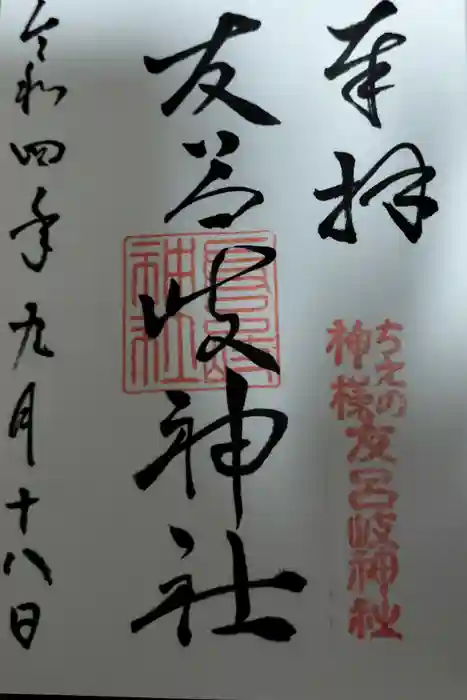 奉拝
ちえの
神様友呂岐神社
友呂岐神社
令和四年九月十八日